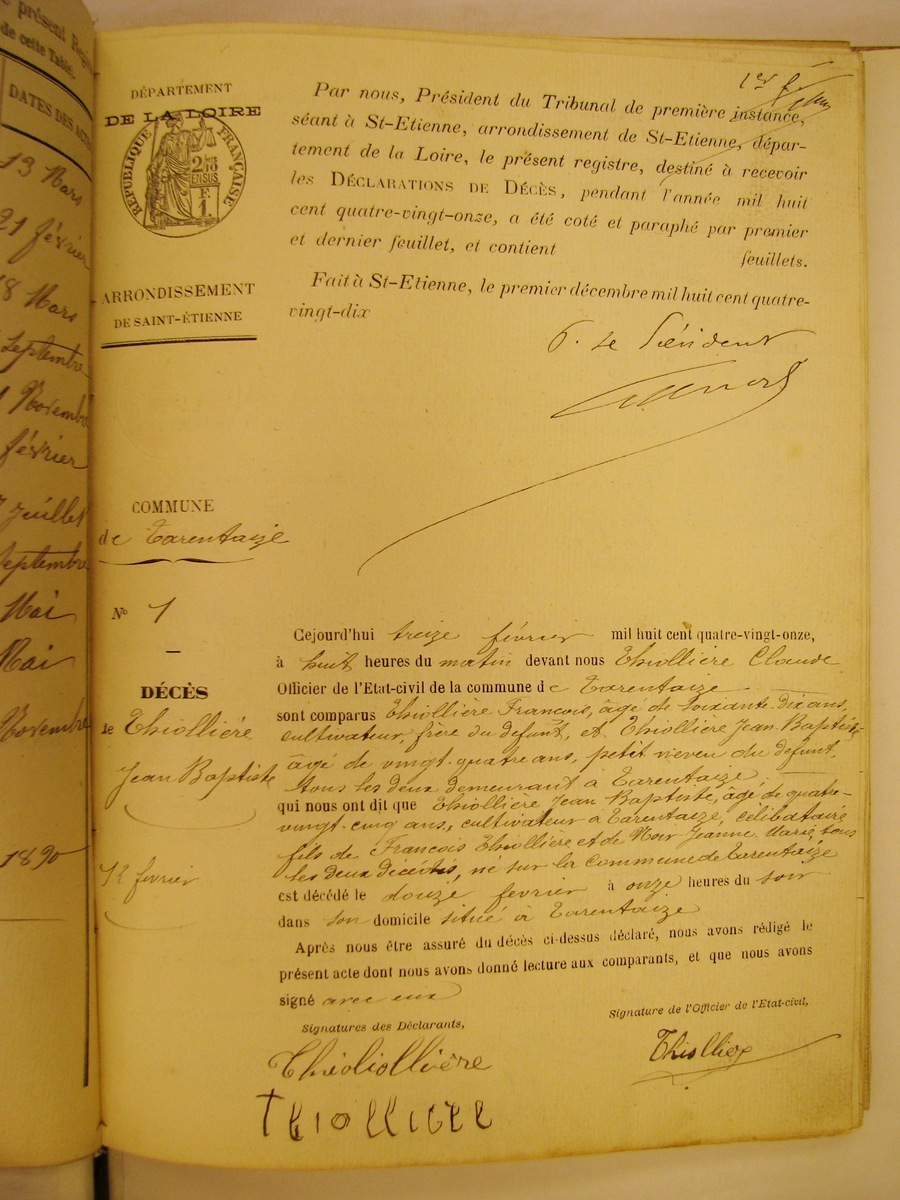 e présent Regis
de cette Table.
DATES DES ACTES
13 Mars
21 février
18 Mars
Septembre
1 Novembre
février
7 Juillet
Septembre
Mai
Mai
Novembre
1890
DÉPARTEMENT
DE LA LOIRE
RÉPUBLIQUE FRANÇAISE
2/10
EN SUS
F.
1.
ARRONDISSEMENT
DE SAINT-ÉTIENNE
1er f.
Par nous, Président du Tribunal de première instance,
séant à St-Etienne, arrondissement de St-Etienne, dépar-
tement de la Loire, le présent registre, destiné à recevoir
les DÉCLARATIONS DE DÉCÈS, pendant l'année mil huit
cent quatre-vingt-onze, a été coté et paraphé par premier
et dernier feuillet, et contient feuillets.
Fait à St-Etienne, le premier décembre mil huit cent quatre-
vingt-dix
P. Le Président
COMMUNE
de Tarentaize
No 1
DÉCÈS
de Thiolliére
Jean Baptiste
12 février
Cejourd'hui treize février mil huit cent quatre-vingt-onze,
à huit heures du matin devant nous Thiollière Claude
Officier de l'Etat-civil de la commune de Tarentaize
sont comparus Thiollière François, âgé de soixante-dix ans,
cultivateur, frère du défunt, et Thiollière Jean Baptiste
âgé de vingt-quatre ans, petit neveu du défunt,
tous les deux demeurant à Tarentaize,
qui nous ont dit que Thiollière Jean Baptiste, âgé de quatre-
vingt-cinq ans, cultivateur à Tarentaize, célibataire
fils de François Thiollière et de Noir Jeanne Marie, tous
les deux décédés, né sur la commune de Tarentaize
est décédé le douze février à onze heures du soir
dans son domicile situé à Tarentaize
Après nous être assuré du décès ci-dessus déclaré, nous avons rédigé le
présent acte dont nous avons donné lecture aux comparants, et que nous avons
signé avec eux
Signatures des Déclarants,
Signature de l'Officier de l'Etat-civil,
Thioliollière
Thiollier
Thiollière